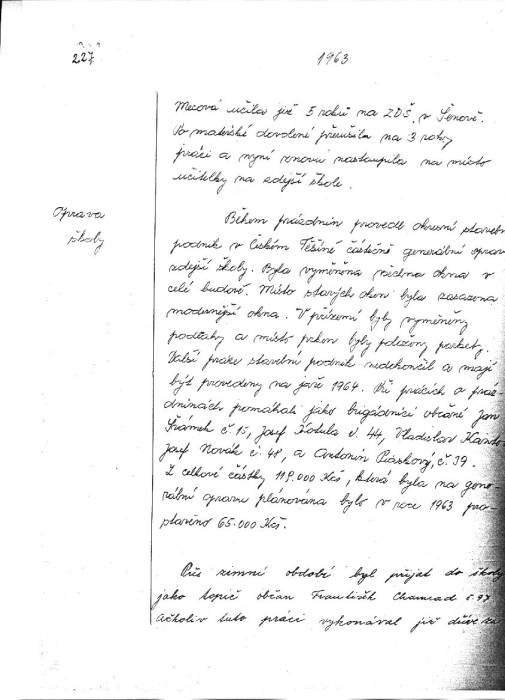 227
1963
Mecová učila již 5 roků na ZDŠ v Šenově.
Po mateřské dovolené přerušila na 3 roky
práci a nyní znovu nastoupila na místo
učitelky na zdejší škole.
Oprava
školy
Během prázdnin provedl okresní staveb
podnik v Českém Těšíně částečně generální oprav
zdejší školy. Byla vyměněna všechna okna v
celé budově. Místo starých oken byla zasazena
modernější okna. V přízemí byly vyměněny
podlahy a místo prken byly položeny parkety.
Další práce stavební podnik nedokončil a mají
být provedeny na jaře 1964. Při pracích o práz-
dninách pomáhali jako brigádníci občané Jan
Šrámek č. 15, Josef Kotula č. 44, Vladislav
Josef Novák č. 48, a Antonín Piaskový, č. 39.
Z celkové částky 119.000 Kčs, která byla na gene-
rální opravu plánována bylo v roce 1963 pro-
staveno 65.000 Kčs.
Přes zimní období byl přijat do školy
jako topič občan František Chamrad č. 97
Ačkoliv tuto práci vykonával již dříve za